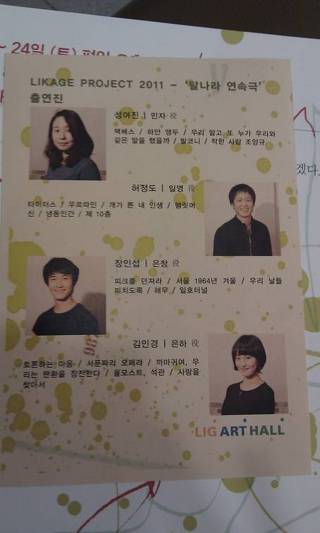 24일 (토) 평일
LIKAGE PROJECT 2011 – '발나라 연속극'
출연진
성여진 | 민자 役
맥베스 / 하얀 앵두 / 우리 말고 또 누가 우리와
같은 말을 했을까 / 발코니 / 착한 사람 조양규
허정도 | 일영 役
타이터스 / 우르파인 / 개가 튼 내 인생 / 햄릿머
신 / 냉동인간 / 제 10층
장인섭 | 은창 役
피크를 던져라 / 서울 1964년 겨울 / 우리 날들
피치도록 / 해무 / 일호터널
김민경 | 은하 役
토론하는 마음 / 서푼짜리 오페라 / 까마귀여, 우
리는 뿐이다 / 갈모스트, 석관 / 사람을
찾아서
LIG ART HALL
겠다.